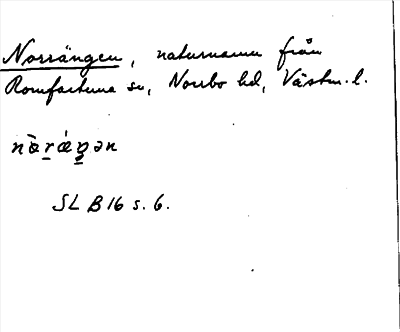 Norrängen, naturnamn från
Romfartuna sn, Norrbo hd, Västm. l.
nὰrǽŋən
SL B 16 s. 6.